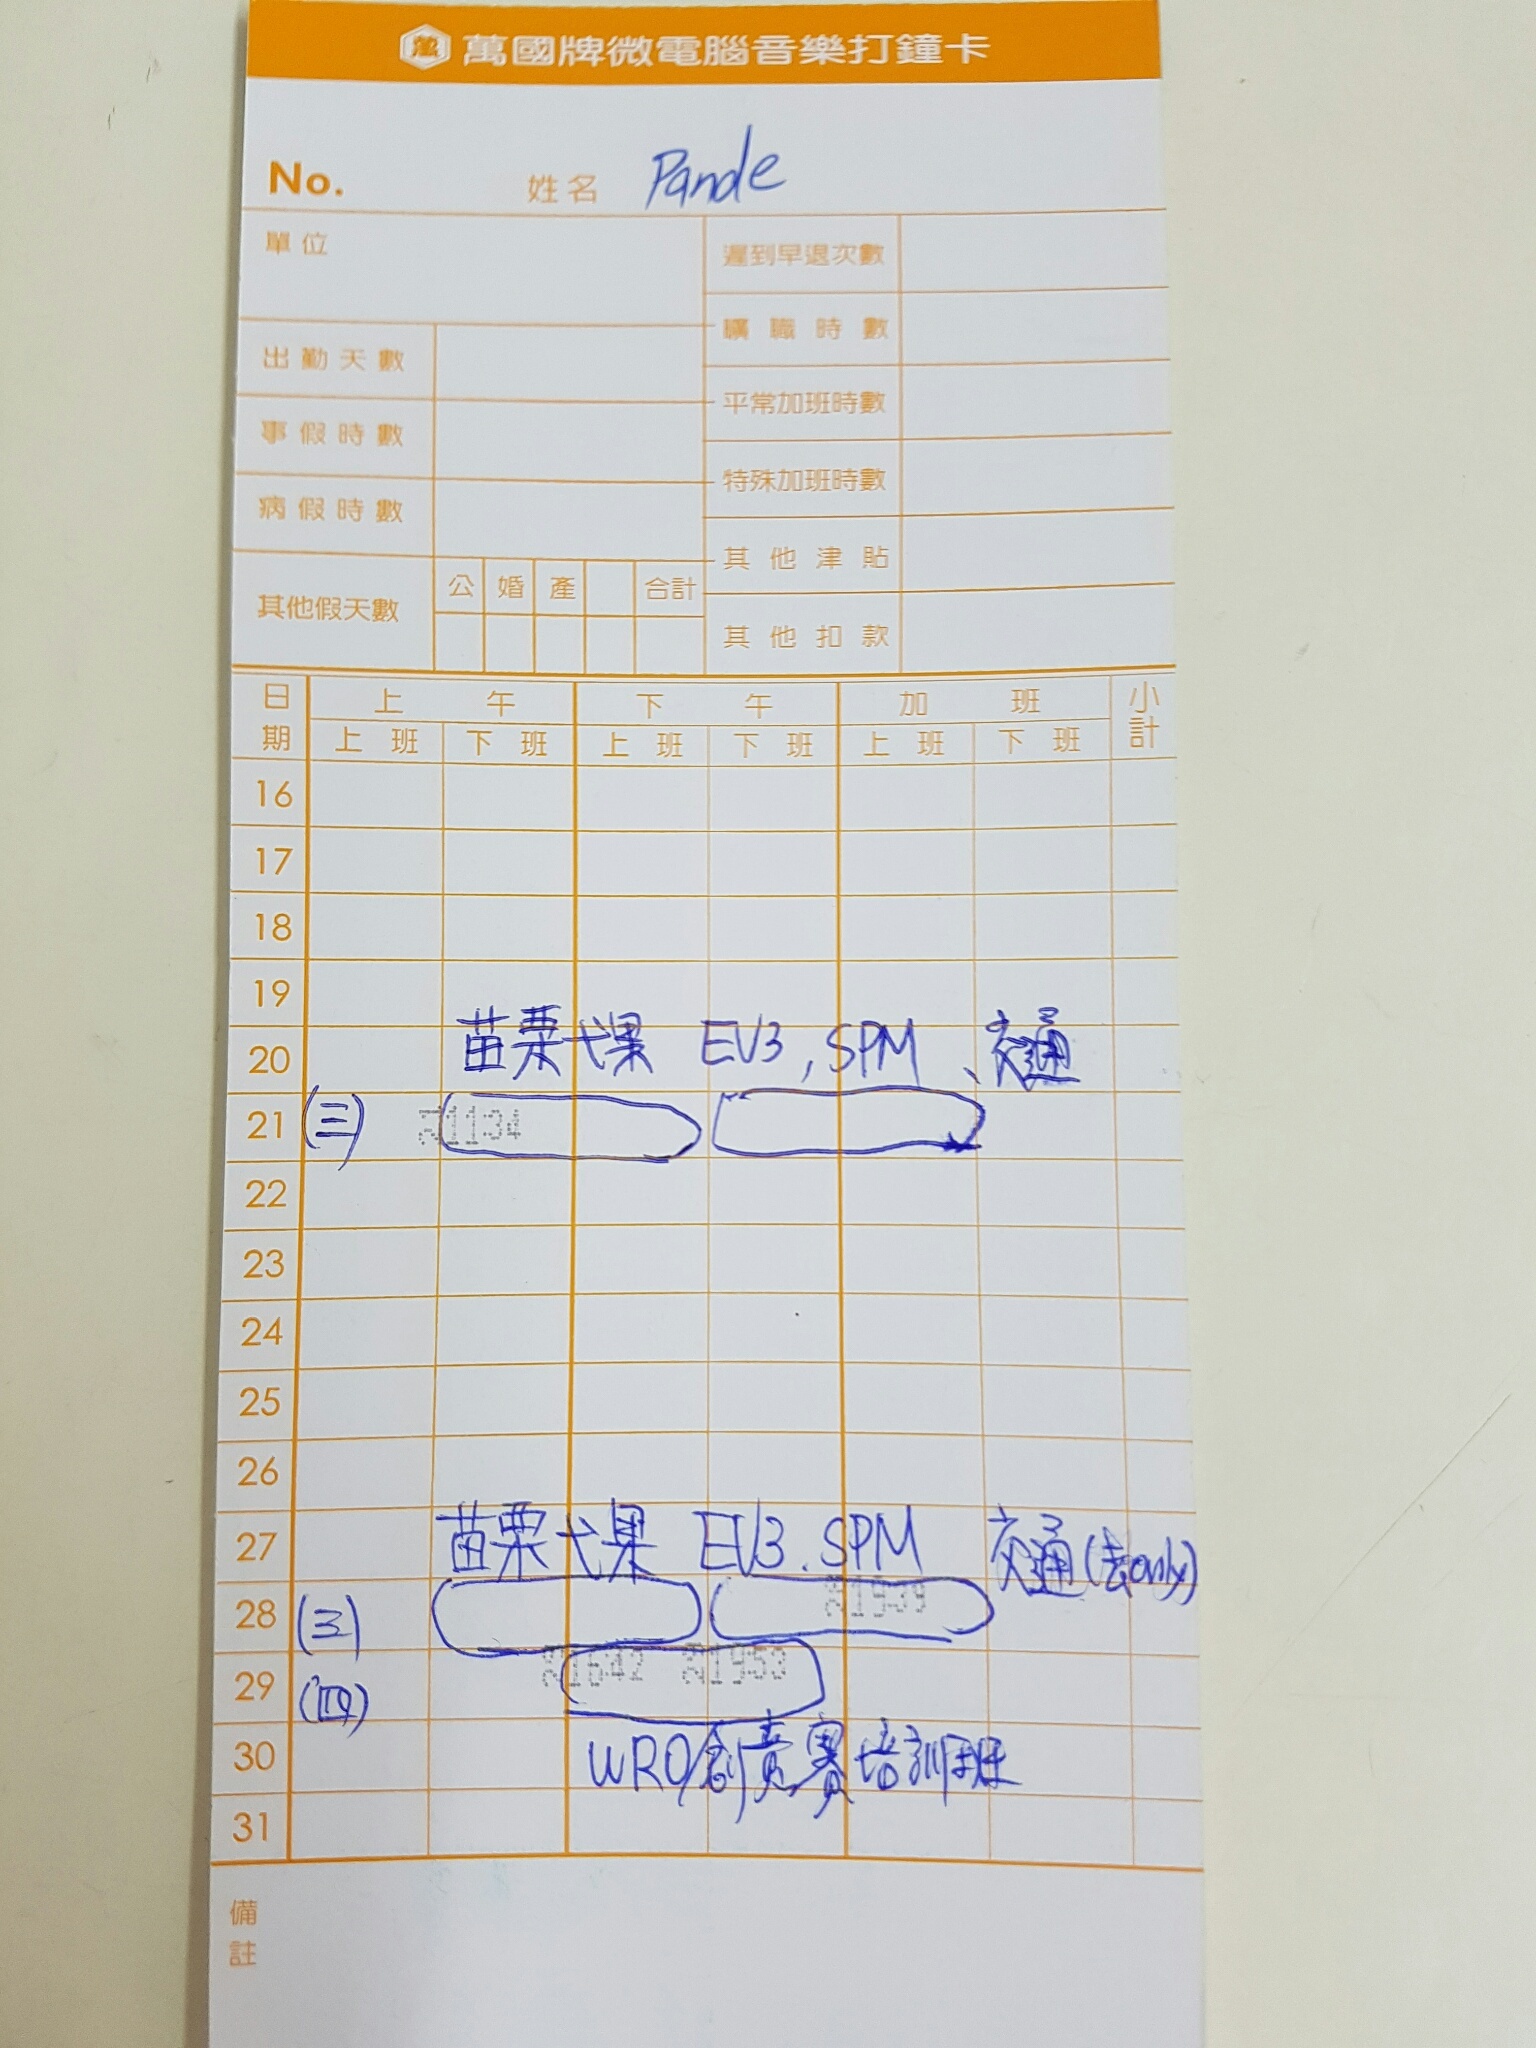 萬國牌微電腦音樂打鐘卡
No. 姓名 Pande
單位 遲到早退次數
曠職時數
出勤天數
平常加班時數
事假時數
特殊加班時數
病假時數
其他津貼
其他假天數 公 婚 產 合計
其他扣款
日期 上午 下午 加班 小計
上班 下班 上班 下班 上班 下班
16
17
18
19
20 苗栗弋果 EV3, SPM、交通
21 (三) 1134
22
23
24
25
26
27 苗栗弋果 EV3. SPM 交通(去only)
28 (三) 1939
29 (四) 1642 1953
30 WRO創意賽培訓班
31
備註